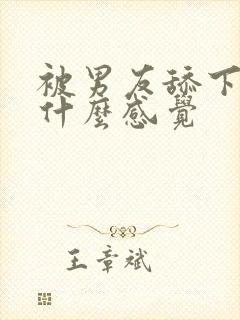 被男友舔下
什麼感覺
王章斌